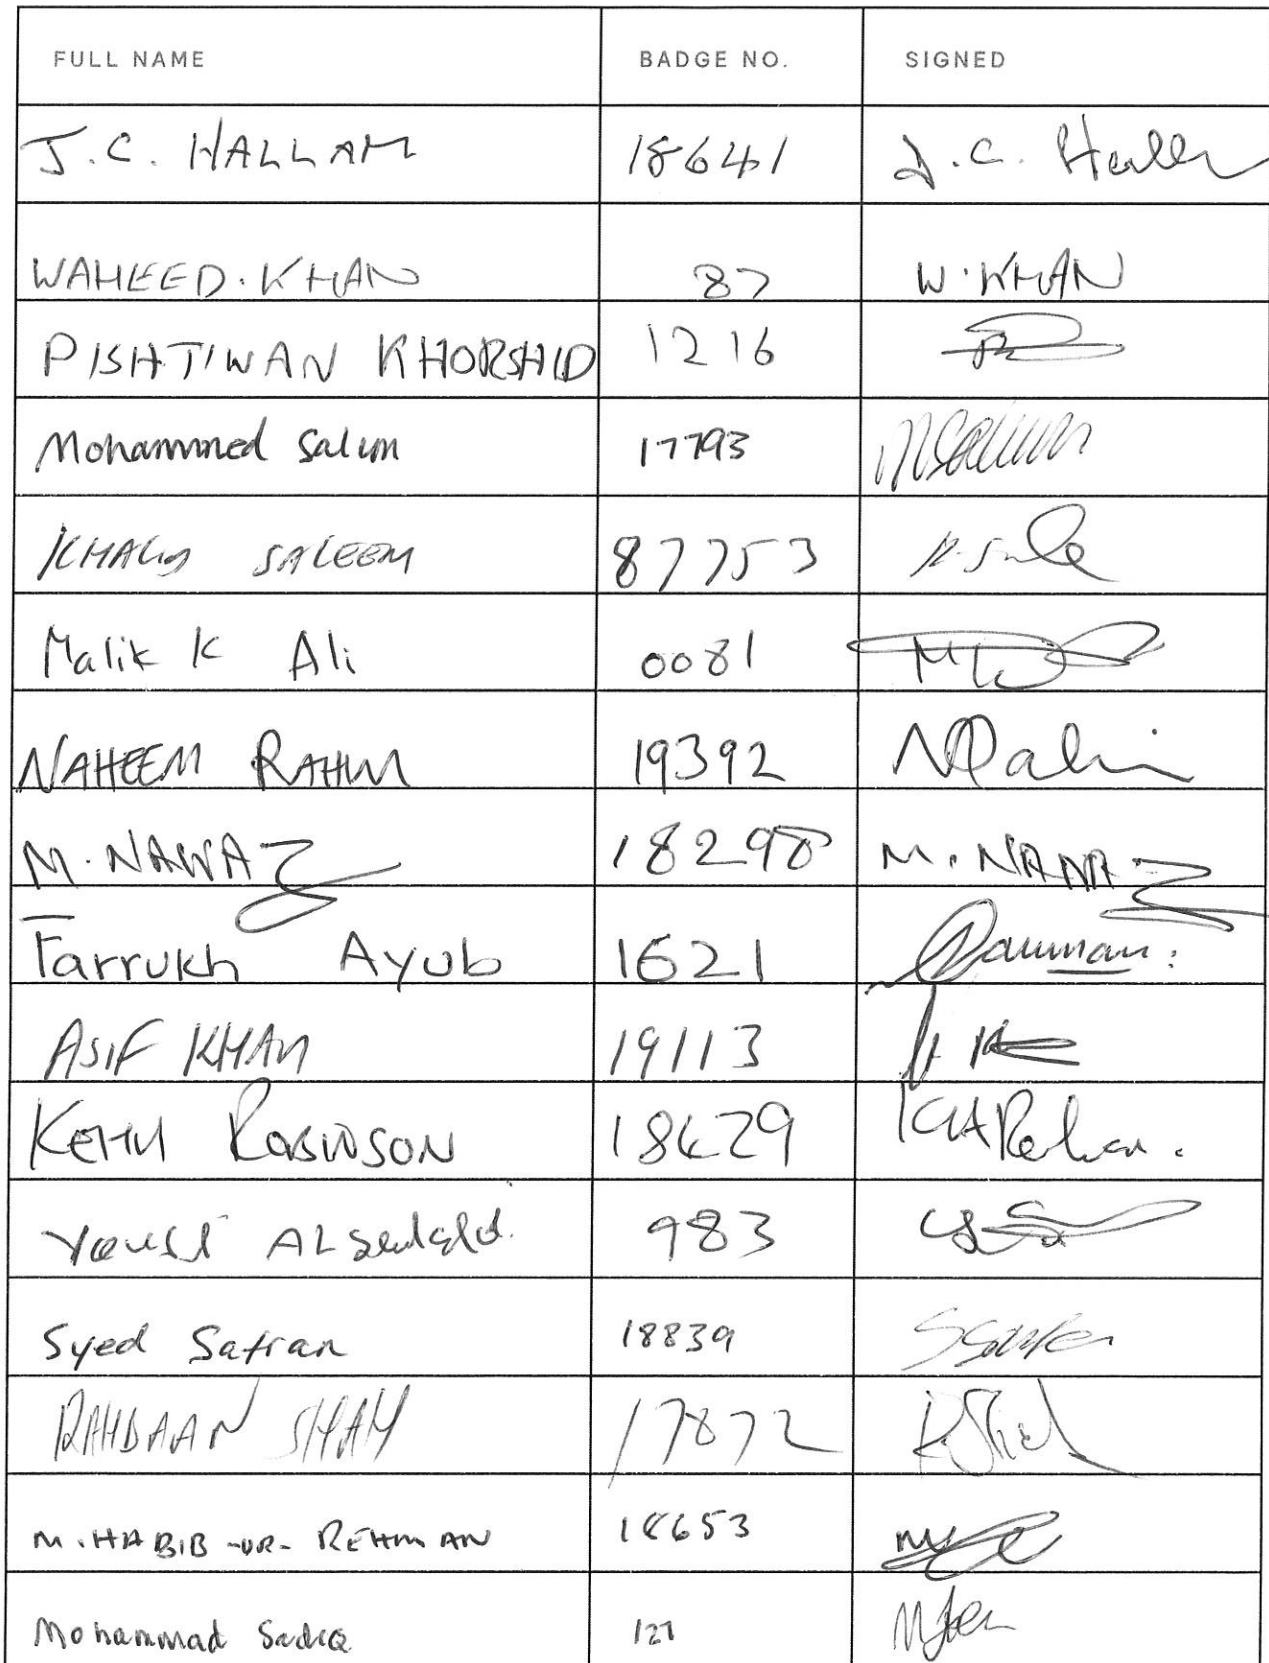 FULL NAME BADGE NO. SIGNED
J.C. HALLAM 18641 J.C. Hall
WAHEED. KHAN 87 W. KHAN
PISHTIWAN KHORSHID 1216
Mohammed Salim 17793 MSalim
KHALID SALEEM 87753
Malik K Ali 0081
NAHEEM RAHIM 19392 NRahi
M. NAWAZ 18298 M. NAWAZ
Farrukh Ayub 1621
ASIF KHAN 19113
KEITH ROBINSON 18629
983
Syed Safran 18839
RAHDAAN SHAH 17872 R.Shah
M. HABIB -UR- REHMAN 18653
Mohammad SadiQ 127